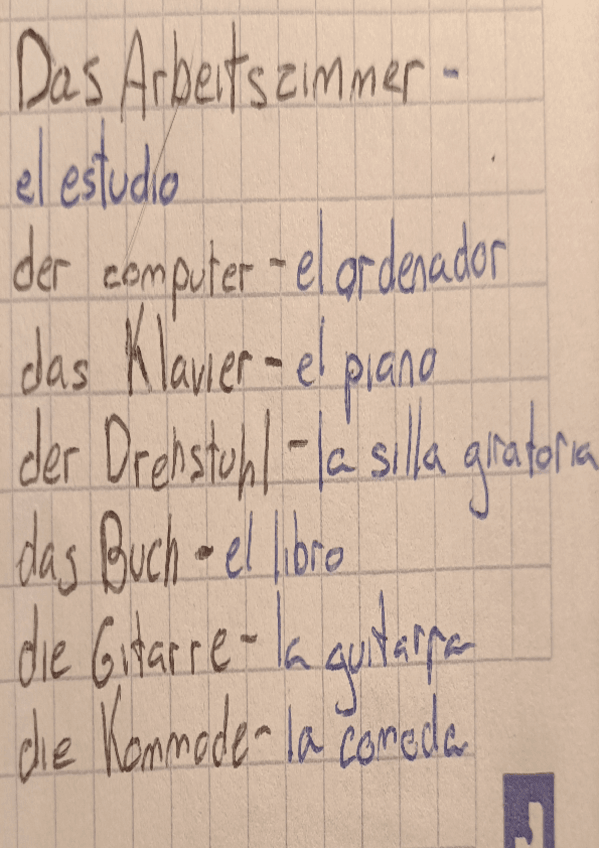 Das Arbeitszimmer -
el estudio
der computer - el ordenador
das Klavier - el piano
der Drehstuhl - la silla giratoria
das Buch - el libro
die Gitarre - la guitarra
die Kommode - la comoda